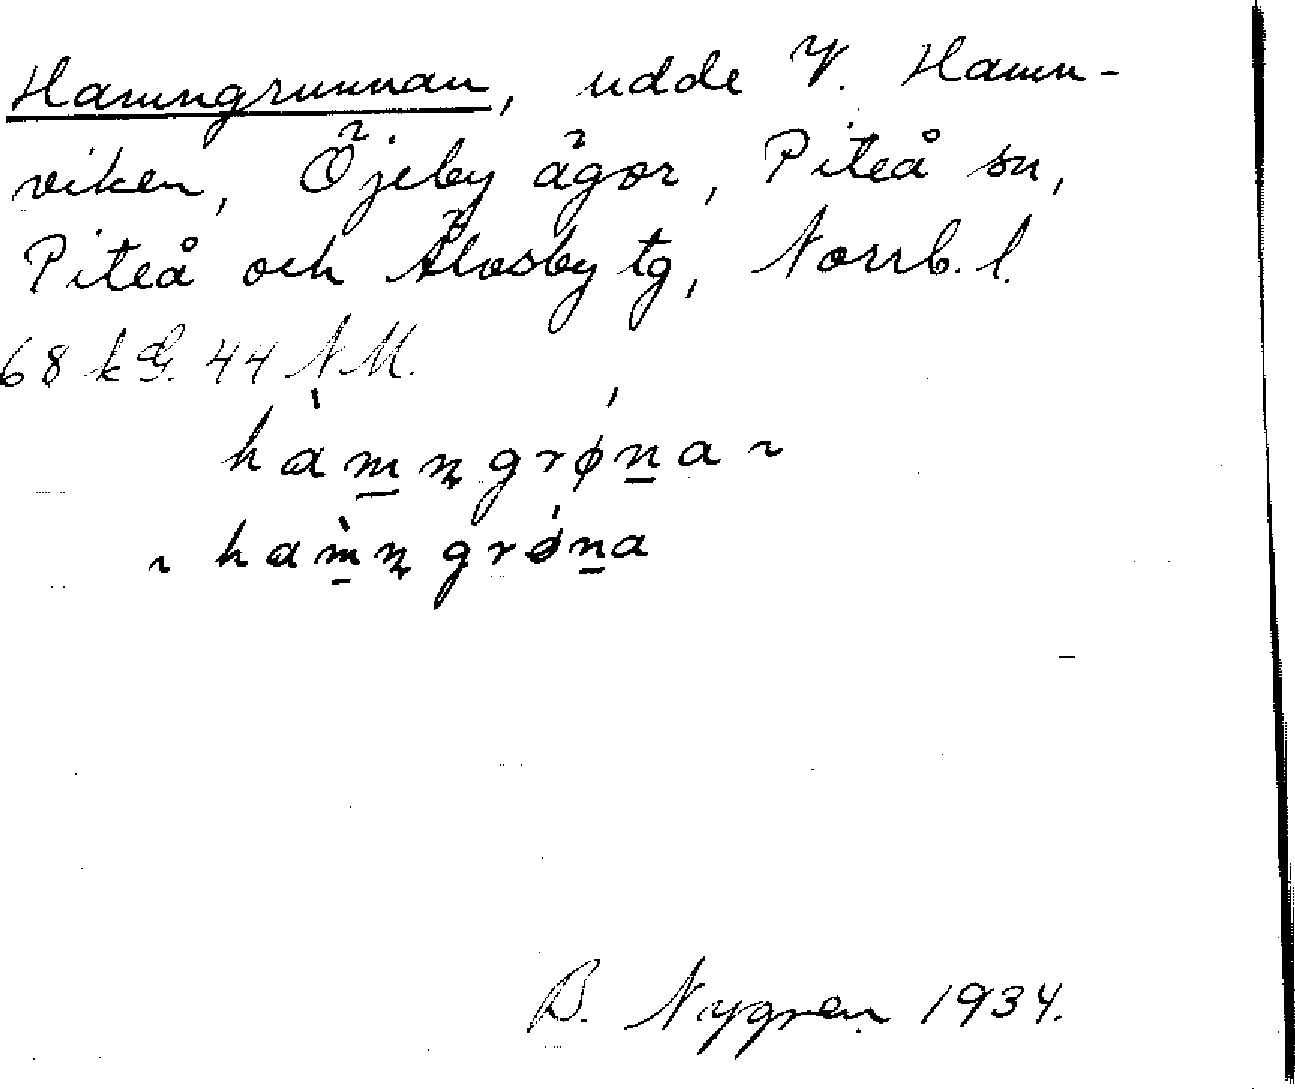 Hamngrunnan, udde V. Hamn-
viken, Öjeby ägor, Piteå sn,
Piteå och Älvsby tg, Norrb. l.
68 k G. 44 N M.
hàm̲n̥grǿn̲a ~
~ ham̲̀n̥grǿn̲a
B. Nygren 1934.